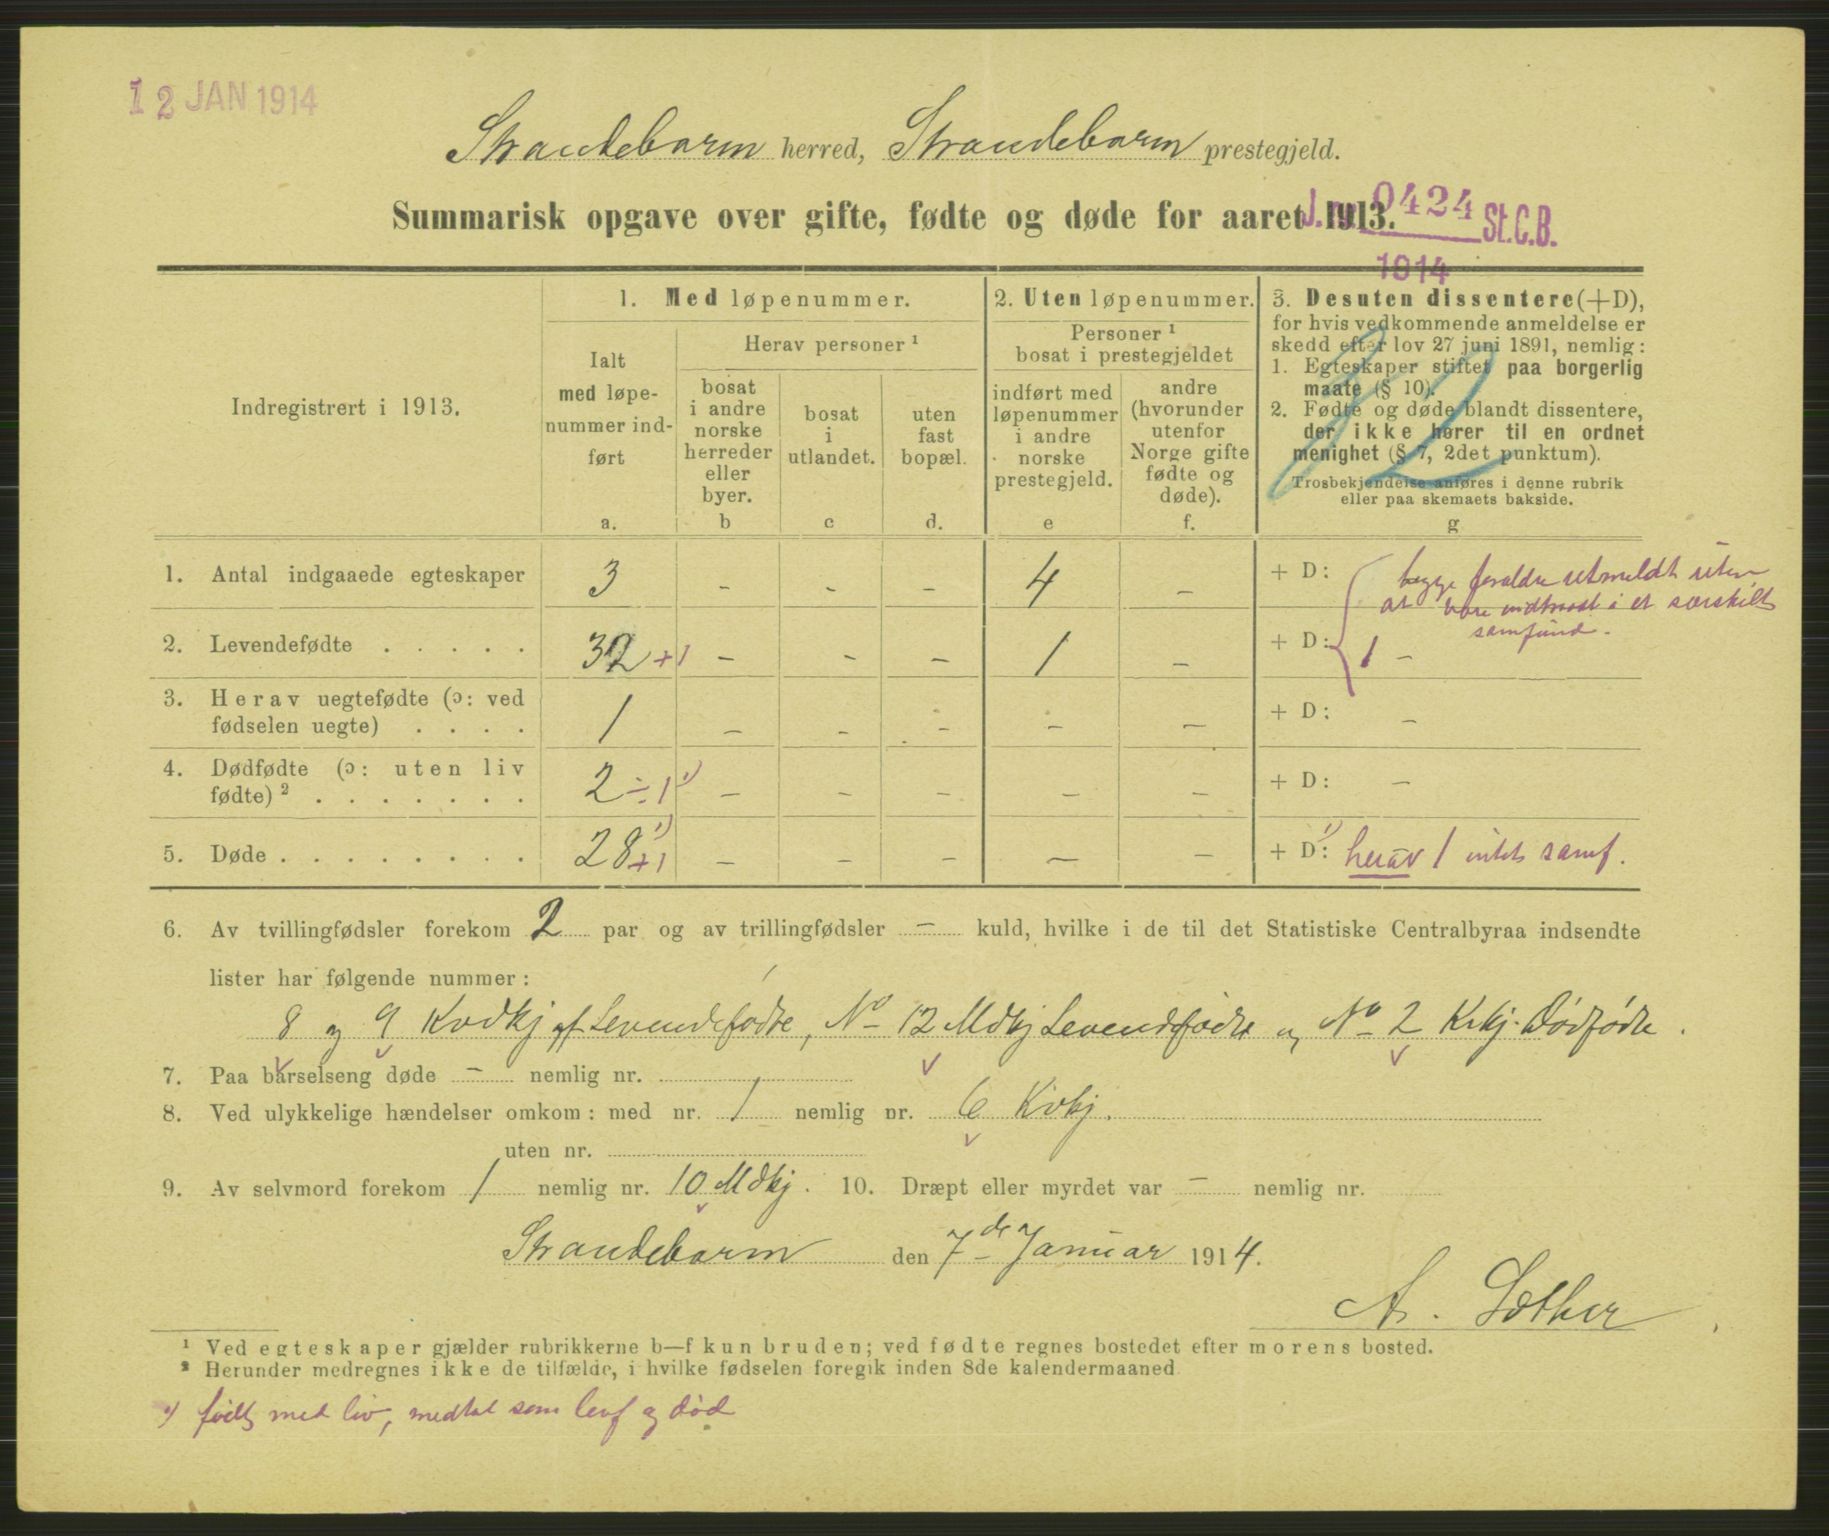 12 JAN 1914
Strandebarm herred, Strandebarm prestegjeld.
Summarisk opgave over gifte, fødte og døde for aaret 1913.
J. nr. 0424 St.C.B.
1914
Indregistrert i 1913.
1. Med løpenummer.
Ialt
med løpe-
nummer ind-
ført
a.
Herav personer ¹
bosat
i andre
norske
herreder
eller
byer.
b
bosat
i
utlandet.
c
uten
fast
bopæl.
d.
2. Uten løpenummer.
Personer ¹
bosat i prestegjeldet
indført med
løpenummer
i andre
norske
prestegjeld.
e
andre
(hvorunder
utenfor
Norge gifte
fødte og
døde).
f.
3. Desuten dissentere (+D),
for hvis vedkommende anmeldelse er
skedd efter lov 27 juni 1891, nemlig:
1. Egteskaper stiftet paa borgerlig
maate (§ 10).
2. Fødte og døde blandt dissentere,
der ikke hører til en ordnet
menighet (§ 7, 2det punktum).
Trosbekjendelse anføres i denne rubrik
eller paa skemaets bakside.
g
12
1. Antal indgaaede egteskaper 3 - - - 4 - + D:
begge forældre utmeldt uten
at være indtraadt i et særskilt
samfund.
2. Levendefødte . . . . . 32 +1 - - - 1 - + D: 1 -
3. Herav uegtefødte (ɔ: ved
fødselen uegte) . . . . 1 - - - - - + D: -
4. Dødfødte (ɔ: uten liv
fødte) ² . . . . . . . 2 ÷1 ¹) - - - - - + D: -
5. Døde . . . . . . . . . 28 +1 ¹) - - - - - + D: ¹) herav 1 intet samf.
6. Av tvillingfødsler forekom 2 par og av trillingfødsler - kuld, hvilke i de til det Statistiske Centralbyraa indsendte
lister har følgende nummer:
8 og 9 Kvdkj af Levendefødte, No 12 Mdkj Levendefødte og No 2 Kvkj. Dødfødte.
7. Paa barselseng døde - nemlig nr.
8. Ved ulykkelige hændelser omkom: med nr. 1 nemlig nr. 6 Kvkj.
uten nr.
9. Av selvmord forekom 1 nemlig nr. 10 Mdkj. 10. Dræpt eller myrdet var - nemlig nr.
Strandebarm den 7de Januar 1914.
A. Sæther
¹ Ved egteskaper gjælder rubrikkerne b—f kun bruden; ved fødte regnes bostedet efter morens bosted.
² Herunder medregnes ikke de tilfælde, i hvilke fødselen foregik inden 8de kalendermaaned
¹) født med liv, medtat som levf og død